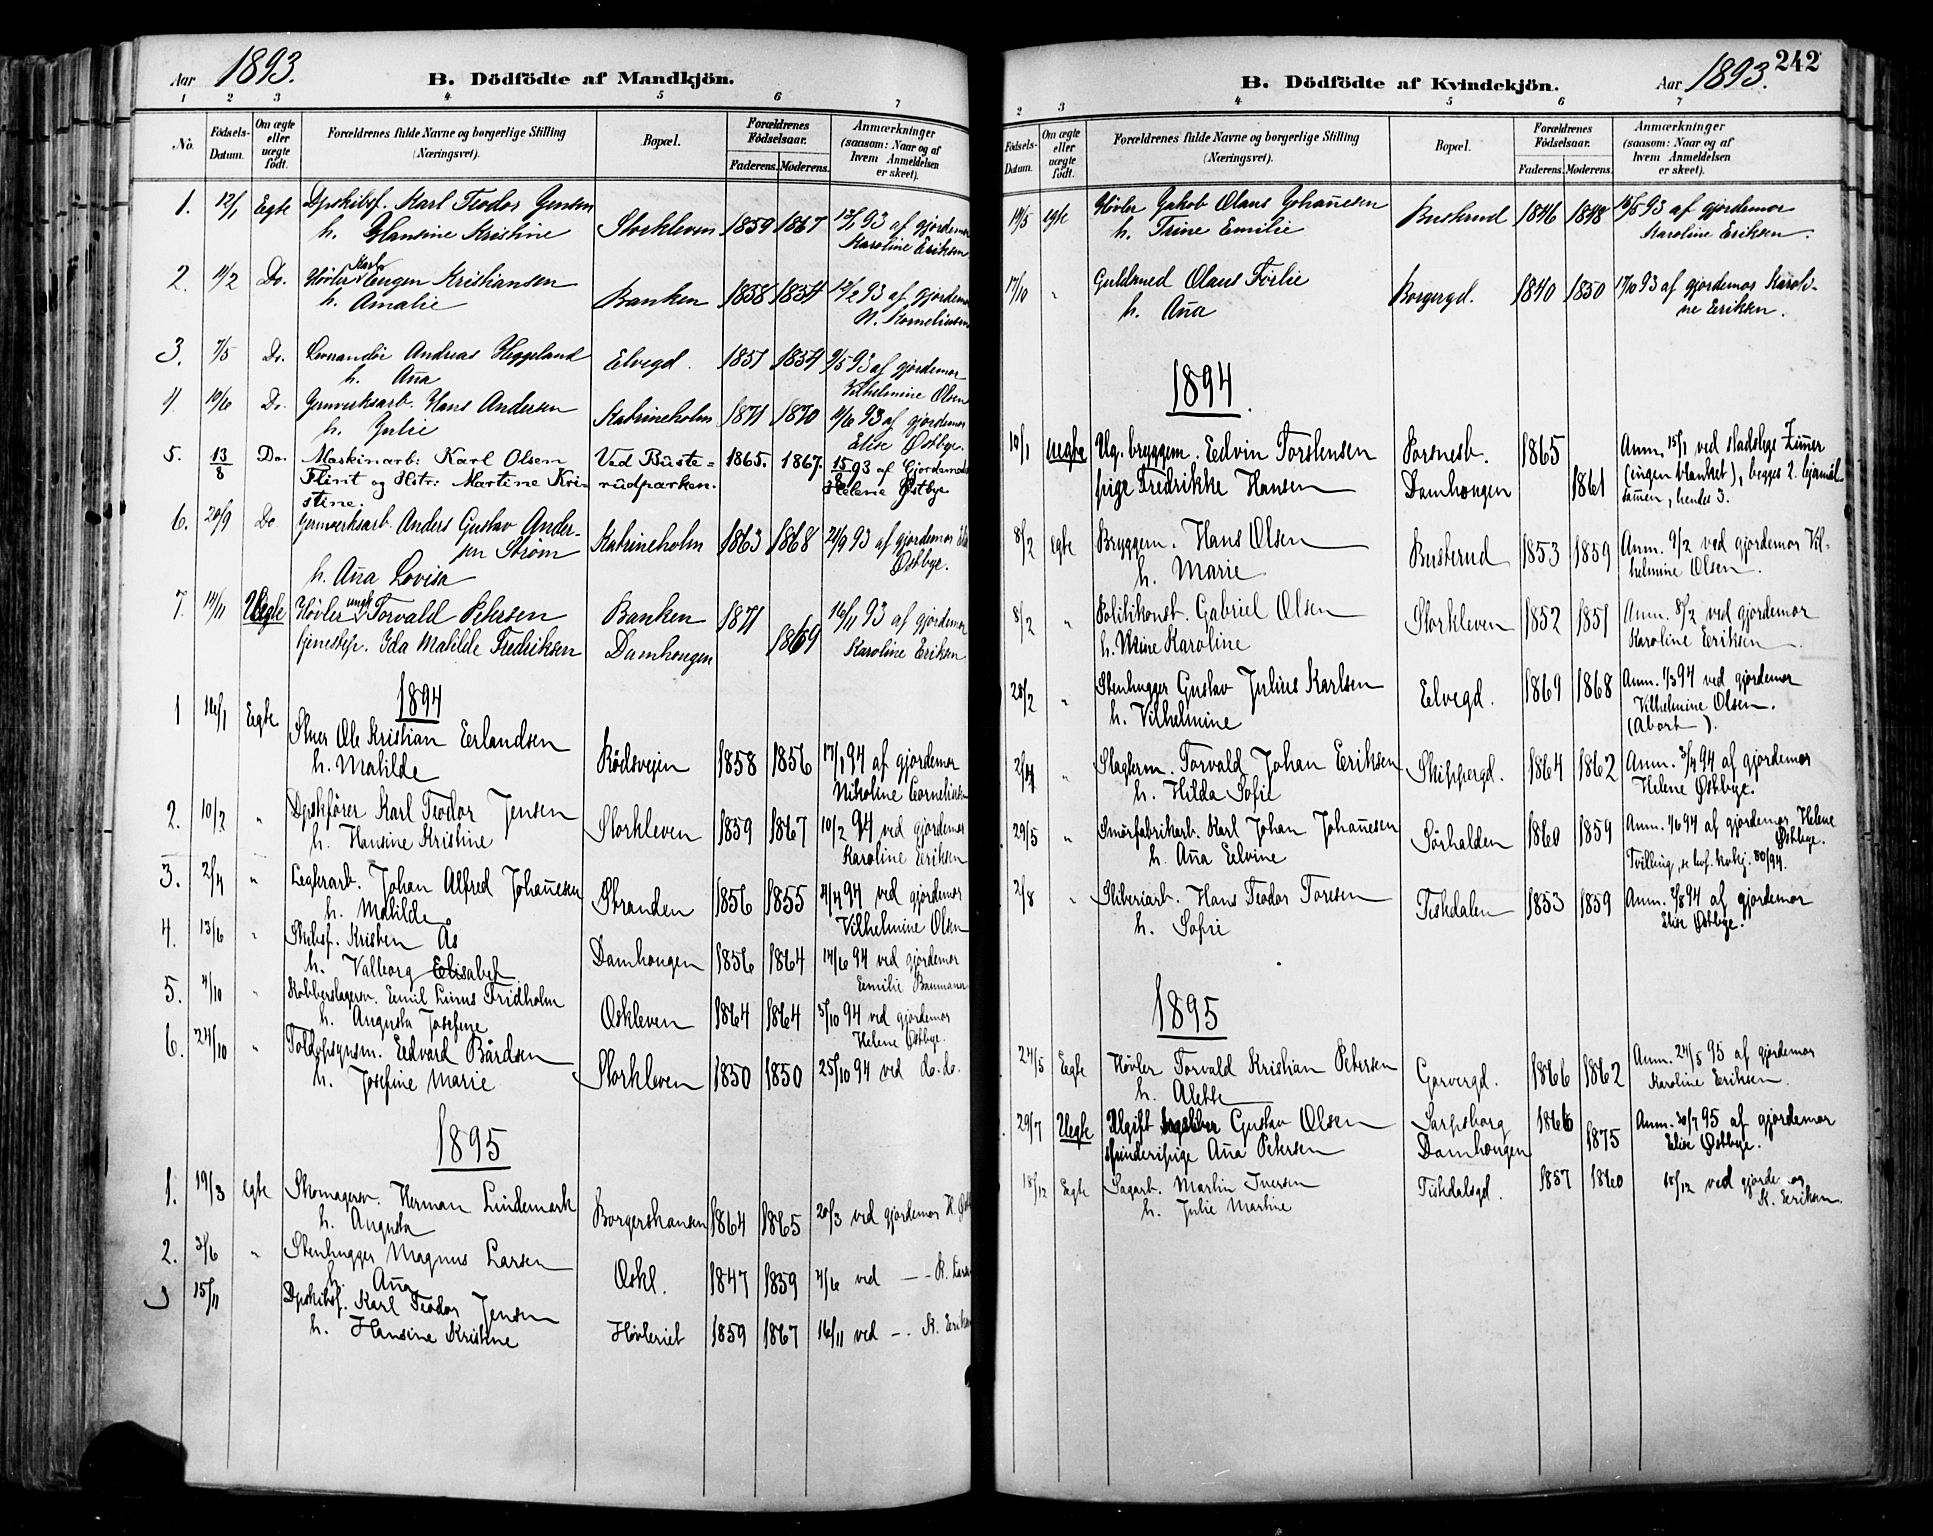 Aar 1893.
B. Dödfödte af Mandkjön.
1 2 3 4 5 6 7
No.
Födsels-Datum.
Om ægte eller uægte født.
Forældrenes fulde Navne og borgerlige Stilling
(Næringsvei).
Bopæl.
Forældrenes Födselsaar.
Faderens. Moderens.
Anmærkninger
(saasom: Naar og af
hvem Anmeldelsen
er skeet).
1. 12/1 Egte Dpskibsf. Karl Teodor Jensen Storkleven 1859 1867 93 af gjordemor
h. Hansine Kristine Karoline Eriksen
2. 11/2 Do. Høvler Karl Eugen Kristiansen Banken 1858 1854 12/2 93 af gjordemor
h. Amalie N. Korneliussen
3. 7/5 Do. Andreas Heggeland Elvegd. 1851 1854 9/5 93 af gjordemor
h. Aña Vilhelmine Olsen
4. 10/6 Do. Jernverksarb. Hans Andersen Katrineholm 1871 1870 11/6 93 af gjordemor
h. Julie Elise Østbye.
5. 13/8 Do. Maskinarb: Karl Olsen Ved Büste= 1865. 1867. 15/8 93 af Gjordemoder
Flint og Hstr: Martine Kri= rüdparken. Helene Østbye
stine.
6. 20/9 Do Jernverksarb. Anders Gustav Ander- Katrineholm 1863 1868 21/9 93 af gjordemor
sen Strøm Østbye.
h. Aña Lovisa
7. 14/11 Uegte Høvler ungk. Torvald Petersen Banken 1871 16/11 93 af gjordemor
tjenestep. Ida Matilde Fredriksen Damhougen 1869 Karoline Eriksen
1894
1 16/1 Egte Ole Kristian Erlandsen Rødsvejen 1858 1856 17/1 94 af gjordemor
h. Matilde Nikoline Corneliussen
2. 10/2 " Dpskfører Karl Teodor Jensen Storkleven 1859 1867 10/2 94 ved gjordemor
h. Hansine Kristine Karoline Eriksen
3. 2/4 " Johan Alfred Johañesen Stranden 1856 1855 4/4 94 ved gjordemor
h. Matilde Vilhelmine Olsen
4. 13/6 " Skibsf. Kristen As Damhougen 1856 1864 14/6 94 ved gjordemor
h. Valborg Elisabet Emilie Baumann
5. 4/10 " Kobberslagersv. Emil Linus Fridholm Oskleven 1864 1864 5/10 94 ved gjordemor
h. Augusta Josefine Helene Østbye.
6. 24/10 " Toldopsynsm. Edvard Bårdsen Storkleven 1850 1850 25/10 94 ved do. do.
h. Josefine Marie
1895
1. 19/3 egte Skomagersv. Herman Lindemark Borgershausen 1864 1865 20/3 ved gjordemor H.
h. Augusta
2. 3/6 " Stenhugger Magnus Larsen Oskl. 1847 1859 4/6 ved — K.
h. Aña
3 15/11 Dpskibsf. Karl Teodor Jensen Høvleriet 1859 1867 16/11 ved — K. Eriksen
h. Hansine Kristine
B. Dödfödte af Kvindekjön.
Aar 1893. 242
2 3 4 5 6 7
Födsels-Datum.
Om ægte eller uægte födt.
Forældrenes fulde Navne og borgerlige Stilling
(Næringsvei).
Bopæl.
Forældrenes Födselsaar.
Faderens. Moderens.
Anmærkninger
(saasom: Naar og af
hvem Anmeldelsen
er skeet).
14/5 egte Høvler Jakob Olaus Johañesen Busterud 1846 1848 16/5 93 af gjordemor
h. Trine Emilie Karoline Eriksen.
17/10 " Guldsmed Olaus Borgergd. 1840 1850 17/10 93 af gjordemor Karoli-
h. Aña ne Eriksen.
1894.
10/1 Uegte Ug. bryggem. Edvin Torstensen Porsnesb. 1865 Anm. 15/1 ved stadslæge
pige Fredrikke Hansen Damhougen 1861 (ingen blanket), begges 2. lejermål
samen, hendes 3.
8/2 egte Bryggem. Hans Olsen Busterud 1853 1859 Anm. 9/2 ved gjordemor Vil-
h. Marie helmine Olsen.
8/2 " Politikonst. Gabriel Olsen Storkleven 1852 1851 Anm. 8/2 ved gjordemor
h. Karoline Karoline Eriksen
28/2 " Stenhugger Gustav Julius Karlsen Elvegd. 1869 1868 Anm. 1/3 94 ved gjordemor
h. Vilhelmine Vilhelmine Olsen.
(Abort).
2/4 " Slagterm. Torvald Johan Eriksen Skippergd. 1864 1862 Anm. 3/4 94 af gjordemor
h. Hilda Sofie Helene Østbye.
29/5 " Smörfabrikarb. Karl Johan Johañesen Sørhalden 1860 1859 Anm. 1/6 94 af gjordemor Helene
h. Aña Elvine Østbye.
Tvilling, se lev. hvkj. 80/94.
2/8 " Sliberiarb. Hans Teodor Toresen Tistdalen 1853 1859 Anm. 4/8 94 af gjordemor
h. Sofie Elise Østbye.
1895
24/5 Egte Høvler Torvald Kristian Petersen Garvergd. 1866 1862 Anm. 24/5 95 af gjordemor
h. Alette Karoline Eriksen.
29/7 Uegte Ugift Gustav Olsen Sarpsborg 1866 Anm. 30/7 95 af gjordemor
spinderipige Aña Petersen Damhougen 1875 Elise Østbye.
18/12 Egte Sagarb. Martin Iversen Tistdalsgd. 1857 1860 18/12 ved gjordemor
h. Julie Martine K. Eriksen.